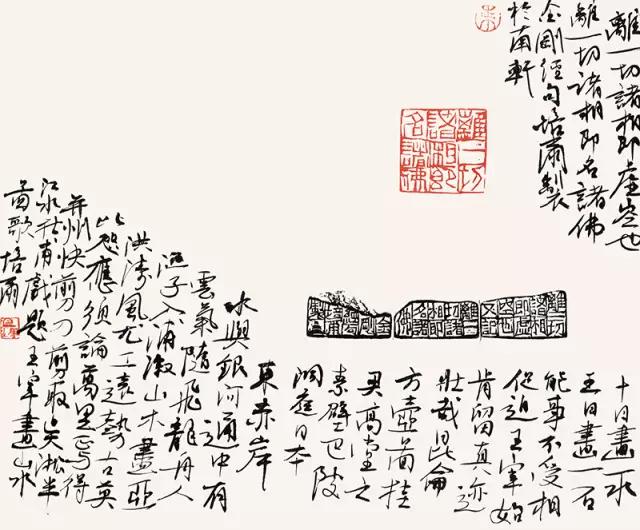 離一切諸相即虛空也
離一切諸相即名諸佛
金剛經句培爾製
於南軒
離一切
諸相即
名諸佛
離一切
諸相
即虛
空也
又記
離一切
諸相即
名諸佛
十日畫一水
五日畫一石
能事不受相
促迫王宰始
肯留真迹
壯哉昆侖
方壺圖挂
君高堂之
素壁巴陵
洞庭日本
東赤岸
水與銀河通中有
雲氣隨飛龍舟人
漁子入浦漵山木盡亞
洪濤風尤工遠勢古莫
比咫應須論萬里焉得
并州快剪刀剪取吳淞半
江水杜甫戲題王宰畫山水
圖歌培爾